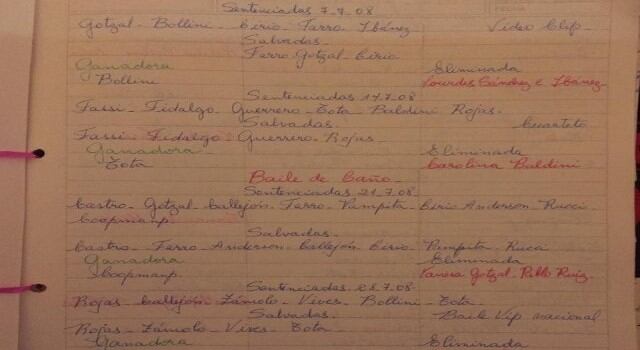 Sentenciadas 7.7.08
Gotzal - Bollini - Cirio - Farro - Ibánez Video Clip
Salvadas
Farro Gotzal - Cirio
Ganadora Eliminada
Bollini Lourdes Sánchez e Ibánez
Sentenciadas 17.7.08
Fassi - Fidalgo - Guerrero - Tota - Baldini Rojas
Salvadas Cuarteto
Fassi Fidalgo - Guerrero - Rojas
Ganadora Eliminada
Tota Carolina Baldini
Baile de Caño
Sentenciadas 21.7.08
Castro - Gotzal - Callejón - Farro - Pampita - Cirio Anderson - Rucci
Coopmanp
Salvadas
Castro - Farro - Anderson - Callejón - Cirio - Pampita - Ruca
Ganadora Eliminada
Coopmanp Vanesa Gotzal - Pablo Ruiz
Sentenciadas 28.7.08
Rojas - Callejón - Zámolo - Vives - Bollini - Tota
Salvadas Baile Vip nacional
Rojas - Zámolo - Vives - Tota
Ganadora Eliminada